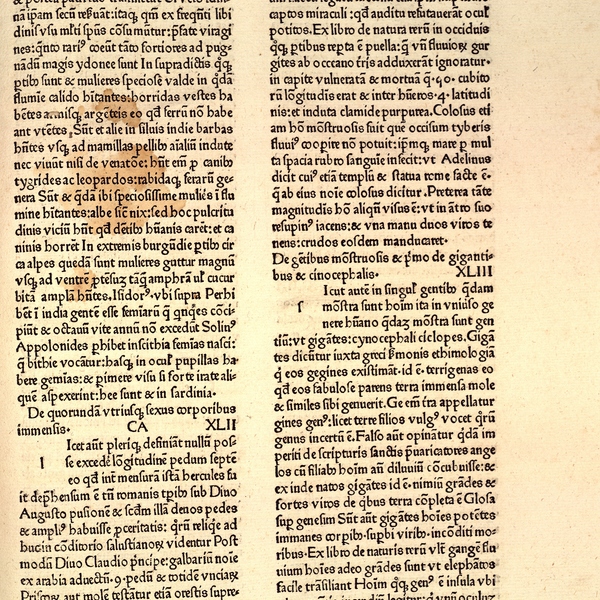 nā ipam secū reſtuāt:itaq; qm̄ ex freq̄nti libi
dinis vſu ml̓ti ſpūs cōſumūtur:p̄fate viragi
nes:q̄nto rari⁹ coeūt tāto fortiores ad pug-
nādū magis ydonee sunt In ſupradictis q̄q;
ptib⁹ ſunt & mulieres ſpecioſe valde in q̄dā
flumie calido hītantes:horridas veſtes ha
bētes armisq; argēteis eo qd̓ ferrū nō habe
ant vtētes. Sūt et alie in ſiluis indie barbas
hn̄tes vſq; ad mamillas pellib⁹ aīaliū indute
nec viuūt niſi de venatōe: hn̄t em̄ p̱ canib⁹
tygrides ac leopardos:rabidaq; ferarū ge-
nera Sūt & q̄dā ibi ſpecioſiſſime muliēs ī flu
mine hītantes:albe ſic̄ nix:ſed hoc pulcritu
dinis viciū hn̄t qd̓ dētib⁹ hūanis carēt:et ca
ninis horrēt In extremis burgūdie ptib⁹ cir
ca alpes quedā ſunt mulieres guttur magnū
vſq; ad ventrē p̱tēſuz tāq̄ amphrā ul̓ cucur
bitā amplā hn̄tes. Iſidor⁹ vbi ſupra Perhi
bēt ī india gentē eſſe femīarū q̄ q̄nq̄ēs cōci-
piūt & octauū vite annū nō excedūt Solin⁹
Appolonides p̱hibet inſcithia femīas naſci:
q̄ bithie vocātur:hasq; in ocul̓ pupillas ha-
bere gemīas:& p̱imere viſu ſi forte irate ali-
quē aſpexerint:hee ſunt & in ſardinia.
De quorundā vtriuſq; sexus corporibus
immenſis. CA XLII
I Icet aūt pleriq; definiāt nullū poſ-
ſe excedē lōgitudinē pedum ſeptē
eo qd̓ int̄ menſurā iſtā hercules fu
it dep̱hēnſum ē tn̄ romanis tp̱ib⁹ ſub Diuo
Auguſto puſionē & ſcd̄m illā denos pedes
& ampli⁹ habuiſſe p̱ceritatis: q̄rū reliq̄e ad
huc in cōditorio ſaluſtianoꝝ videntur Poſt
modū Diuo Claudio p̄ncipe:galbariū noīe
ex arabia aduectū.9.pedū & totidē vnciaꝝ
captos miraculi :qd̓ auditu refutauerāt ocul̓
potitos. Ex libro de natura reꝝ in occiduis
q̄q; ptibus reꝑta ē puella:q̄ vn̄ fluuioꝝ gur
gites ab occeano ſris adduxerāt ignoratur.
in capite vulneratā & mortuā q̄.50. cubito
rū lōgitudīs erat & inter hūeros.4. latitudi
nis:et induta clamide purpurea. Coloſus eti
am hō mōſtruoſus fuit quē occiſum tyberis
fluui⁹ coop̱ire nō potuit:īpm̄q; mare p̱ mul
ta ſpacia rubro ſanguīe infecit:vt Adelinus
dicit cui⁹ etiā templū & ſtatua rome facte ē
q̄ ab eius noīe coloſus dicitur .Preterea tāte
magnitudīs hō aliqn̄ viſus ē:vt in ātro ſuo
reſupin⁹ iacens:& vna manu duos viros te
nens:crudos eoſdem manducaret.
De gētibus mōſtruoſis & p̄mo de giganti-
bus & cinocephalis. XLIII
S Icut autē in ſingul̓ gentib⁹ q̄dam
mōſtra ſunt hoīm ita in vniuſo ge
nere hūano q̄daz mōſtra ſunt gen
tiū:vt gigātes:cynocephali ciclopes. Gigā
tes dicūtur iuxta greci ſ̱monis ethimologiā
q̄ eos gegines exiſtimāt.id ē terrigenas eo
qd̓ eos fabuloſe parens terra immenſa mole
& ſimiles ſibi genuerit. Ge em̄ tr̄a appellatur
gines gen⁹:licet terre filios vulg⁹ vocet q̄rū
genus incertū ē. Falſo aūt opinatur q̄dā im
periti de ſcripturis ſanctis p̄uaricatores ange
los cū filiab⁹ hoīm añ diluuiū cōcubuiſſe:&
ex inde natos gigātes id ē nimiū grādes &
fortes viros de q̄bus terra cōpleta ē Gloſa
ſup geneſim Sūt aūt gigātes hoīes potētes
immanes corp̱ib⁹ ſup̱bi virib⁹ incōditi mo-
ribus. Ex libro de naturis reꝝ vlt̄ gangē flu
uium hoīes adeo grādes ſunt vt elephātos
facile trāſiliant Hoīm q̄q; gen⁹ ē inſula vbi